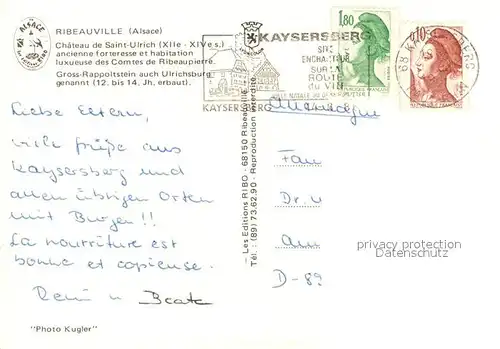 ALSACE
RIBEAUVILLE (Alsace)
Château de Saint-Ulrich (XIIe - XIVe s.)
ancienne forteresse et habitation
luxueuse des Comtes de Ribeaupierre.
Gross-Rappoltstein auch Ulrichsburg
genannt (12. bis 14, Jh. erbaut).
KAYSERSBERG
SITE
ENCHANTEUR
SUR LA
ROUTE
du VIN
KAYSERSBERG
1,80
0,10
68 KAYSERSBERG
Allemagne
Liebe Eltern,
viele Grüße aus
Kaysersberg und
allen übrigen Orten
mit Burgen!!
La nourriture est
bonne et copieuse.
u Beate
"Photo Kugler"
— Les Editions RIBO - 68150 Ribeauvillé -
Tél. : (89) 73.62.90 - Reproduction interdite.
Dr. u
D-89
privacy protection
Datenschutz